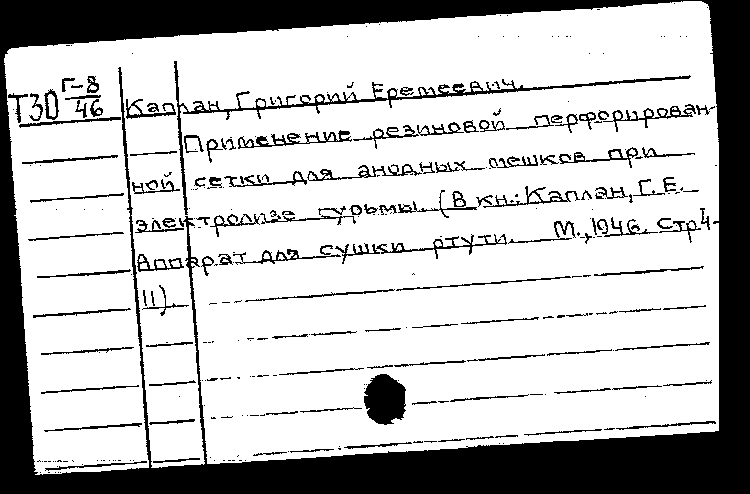 Г-8
ТЗО 46 Каплан, Григорий Еремеевич.
Применение резиновой перфорирован-
ной сетки для анодных мешков при
электролизе сурьмы. (В кн.: Каплан, Г. Е.
Аппарат для сушки ртути. М., 1946. Стр 4-
11).